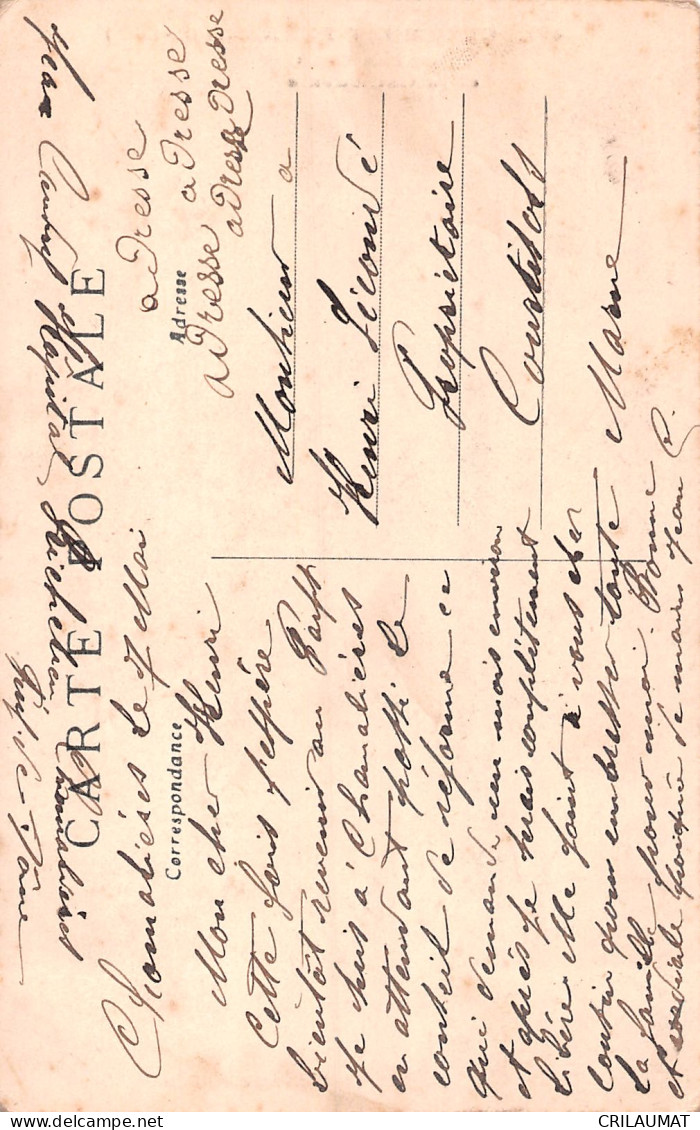 Jean Hôpital Richelieu Chamalières
Puy-de-Dôme
CARTE POSTALE
Chamalières le 7 Mai
Correspondance
Mon cher Henri
Cette fois j'espère
bientôt revenir au Pays
Je suis à Chamalières
en attendant passé le
conseil de réforme ce
qui demande un mois environ
et après je serais complètement
libéré. Me joint à vous cher
cousin pour embrasser toute
la famille pour moi. Bonne
et cordiale poignée de mains Jean C.
adresse
Adresse
adresse adresse
adresse adresse
Monsieur a
Henri Lécouvé
Propriétaire
Courtisols
Marne
delcampe.net
CRILAUMAT